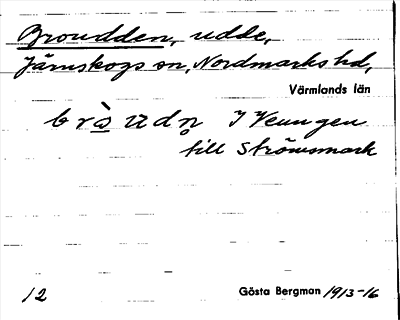 Broudden, udde,
Järnskogs sn, Nordmarks hd,
Värmlands län
I Vennngen
till Strömsmark
12 Gösta Bergman 1913-16